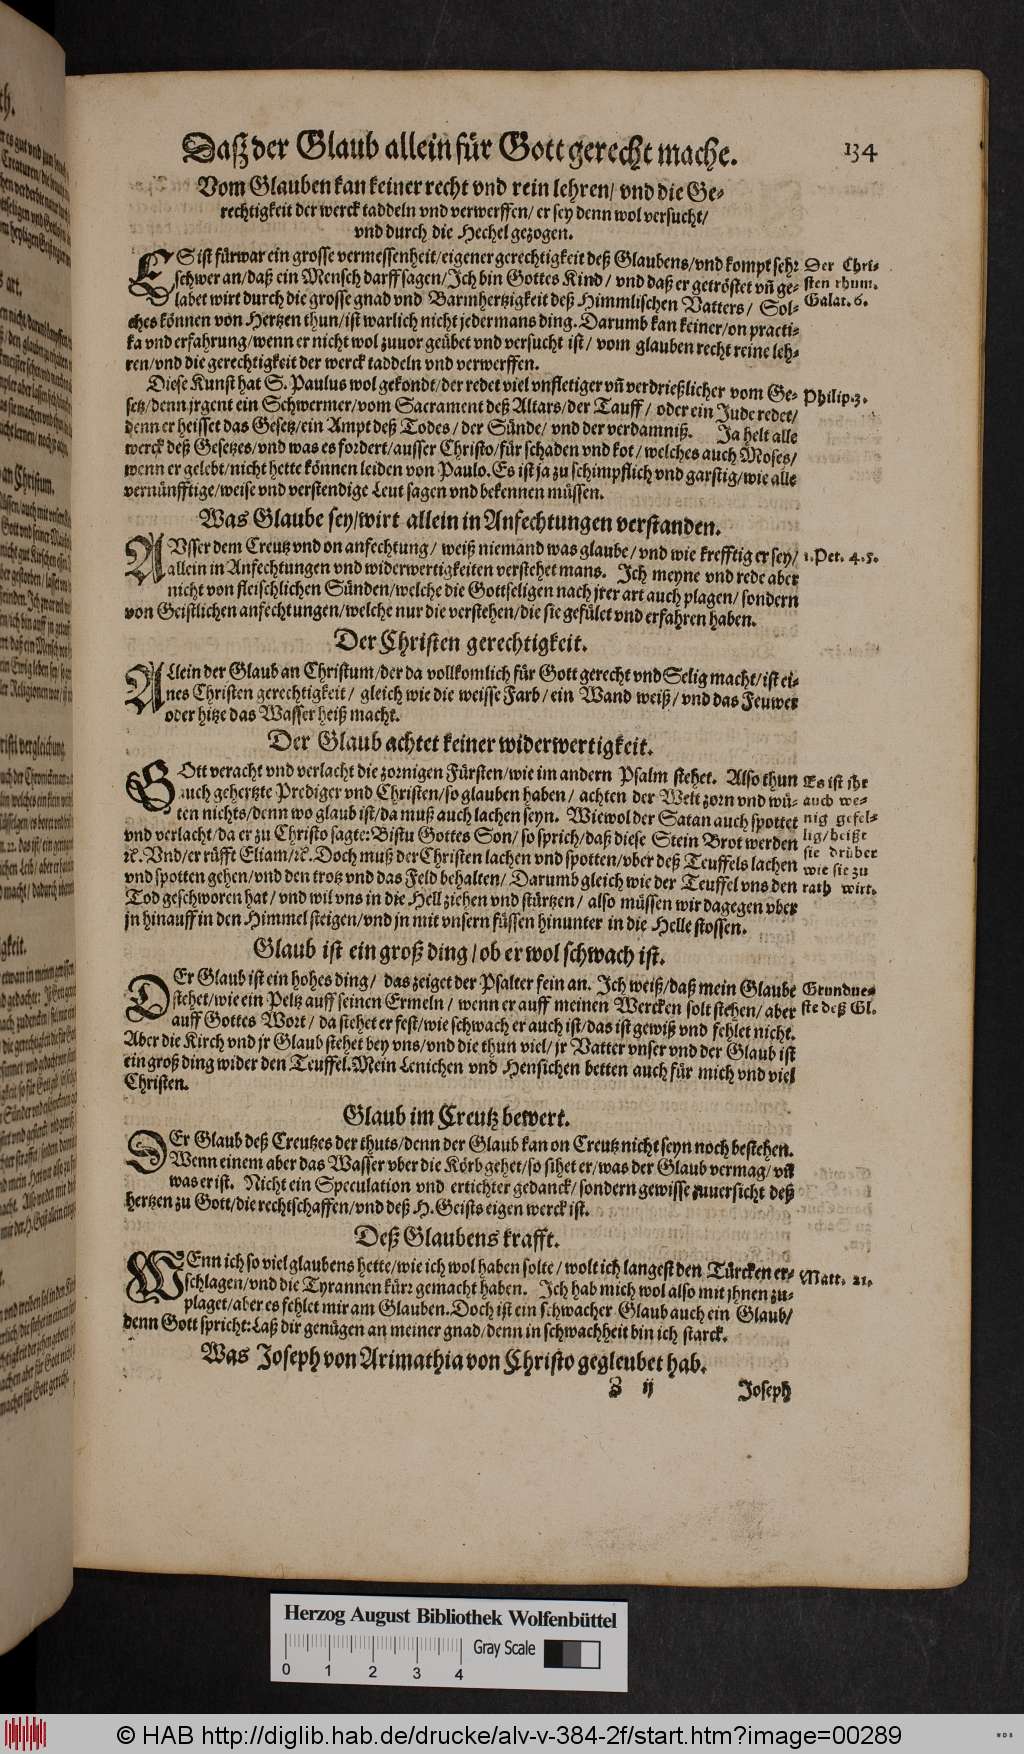 Daß der Glaub allein für Gott gerecht mache. 134
Vom Glauben kan keiner recht vnd rein lehren/ vnd die Ge-
rechtigkeit der werck taddeln vnd verwerffen/ er sey denn wol versucht/
vnd durch die Hechel gezogen.
ES ist fürwar/ein grosse vermessenheit/eigener gerechtigkeit deß Glaubens/vnd kompt sehr
schwer an/daß ein Mensch darff sagen/Jch bin Gottes Kind/ vnd daß er getröstet vñ ge-
labet wirt durch die grosse gnad vnd Barmhertzigkeit deß Himmlischen Vatters/ Sol-
ches können von Hertzen thun/ist warlich nicht jedermans ding. Darumb kan keiner/on practi-
ka vnd erfahrung/wenn er nicht wol zuuor geübet vnd versucht ist/ vom glauben recht reine leh-
ren/vnd die gerechtigkeit der werck taddeln vnd verwerffen.
Der Chri-
sten rhum.
Galat. 6.
Diese Kunst hat S. Paulus wol gekondt/der redet viel vnfletiger vñ verdrießlicher vom Ge-
setz/denn jrgent ein Schwermer/vom Sacrament deß Altars/der Tauff/ oder ein Jude redet/
denn er heisset das Gesetz/ein Ampt deß Todes/ der Sünde/ vnd der verdamniß. Ja helt alle
werck deß Gesetzes/vnd was es fordert/ausser Christo/für schaden vnd kot/welches auch Moses/
wenn er gelebt/nicht hette können leiden von Paulo. Es ist ja zu schimpflich vnd garstig/wie alle
vernünfftige/weise vnd verstendige Leut sagen vnd bekennen müssen.
Philip.3.
Was Glaube sey/wirt allein in Anfechtungen verstanden.
AVsser dem Creutz vnd on anfechtung/ weiß niemand was glaube/vnd wie krefftig er sey/
allein in Anfechtungen vnd widerwertigkeiten verstehet mans. Jch meyne vnd rede aber
nicht von fleischlichen Sünden/welche die Gottseligen nach jrer art auch plagen/sondern
von Geistlichen anfechtungen/welche nur die verstehen/die sie gefület vnd erfahren haben.
1. Pet. 4. 5.
Der Christen gerechtigkeit.
ALlein der Glaub an Christum/der da vollkomlich für Gott gerecht vnd Selig macht/ist ei-
nes Christen gerechtigkeit/ gleich wie die weisse Farb/ein Wand weiß/vnd das Feuwer
oder hitze das Wasser heiß macht.
Der Glaub achtet keiner widerwertigkeit.
GOtt veracht vnd verlacht die zornigen Fürsten/wie im andern Psalm stehet. Also thun
auch gehertzte Prediger vnd Christen/so glauben haben/ achten der Welt zorn vnd wü-
ten nichts/denn wo glaub ist/da muß auch lachen seyn. Wiewol der Satan auch spottet
vnd verlacht/da er zu Christo sagte: Bistu Gottes Son/so sprich/daß diese Stein Brot werden
ꝛc. Vnd/er rüfft Eliam/ꝛc. Doch muß der Christen lachen vnd spotten/vber deß Teuffels lachen
vnd spotten gehen/vnd den trotz vnd das Feld behalten/ Darumb gleich wie der Teuffel vns den
Tod geschworen hat/vnd wil vns in die Hell ziehen vnd stürtzen/ also müssen wir dagegen vber
jn hinauff in den Himmel steigen/vnd jn mit vnsern füssen hinunter in die Helle stossen.
Es ist jhr
auch we-
nig gefel-
lig/heißt
sie drüber
wie sie zu
rath wirt.
Glaub ist ein groß ding/ob er wol schwach ist.
DEr Glaub ist ein hohes ding/ das zeiget der Psalter fein an. Jch weiß/daß mein Glaube
stehet/wie ein Peltz auff seinen Ermeln/ wenn er auff meinen Wercken solt stehen/ aber
auff Gottes Wort/ da stehet er fest/wie schwach er auch ist/das ist gewiß vnd fehlet nicht.
Aber die Kirch vnd jr Glaub stehet bey vns/vnd die thun viel/jr Vatter vnser vnd der Glaub ist
ein groß ding wider den Teuffel. Mein Lenichen vnd Hensichen betten auch für mich vnd viel
Christen.
Grundue-
ste deß Gl.
Glaub im Creutz bewert.
DEr Glaub deß Creutzes der thuts/denn der Glaub kan on Creutz nicht seyn noch bestehen.
Wenn einem aber das Wasser vber die Körb gehet/so sihet er/was der Glaub vermag/vñ
was er ist. Nicht ein Speculation vnd ertichter gedanck/sondern gewisse zuuersicht deß
hertzen zu Gott/die rechtschaffen/vnd deß H. Geists eigen werck ist.
Deß Glaubens krafft.
WEnn ich so viel glaubens hette/wie ich wol haben solte/wolt ich langest den Türcken er-
schlagen/vnd die Tyrannen kürr gemacht haben. Jch hab mich wol also mit jhnen zu-
plaget/aber es fehlet mir am Glauben. Doch ist ein schwacher Glaub auch ein Glaub/
denn Gott spricht: Laß dir genügen an meiner gnad/denn in schwachheit bin ich starck.
Matt. 21.
Was Joseph von Arimathia von Christo gegleubet hab.
Z ij Joseph
Herzog August Bibliothek Wolfenbüttel
Gray Scale
0 1 2 3 4
© HAB http://diglib.hab.de/drucke/alv-v-384-2f/start.htm?image=00289